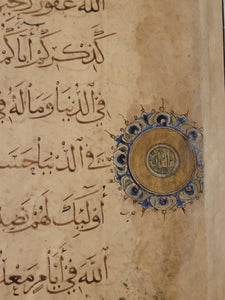 الله غفور رحيم
كَذِكْرِكُمْ آبَاءَكُمْ
فِي الدُّنْيَا وَمَا لَهُ فِي
فِي الدُّنْيَا حَسَنَة
أُولَٰئِكَ لَهُمْ نَصِيب
اللَّهَ فِي أَيَّامٍ مَعْد